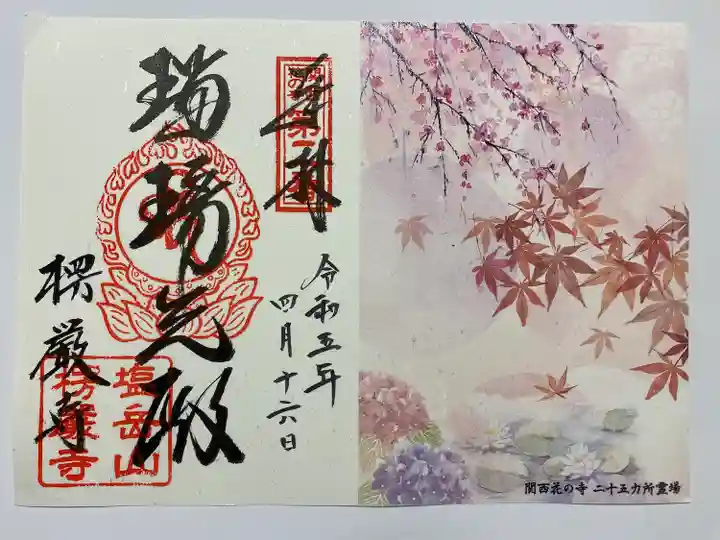 奉拝
令和五年
四月十六日
瑠璃光殿
楞厳寺
塩岳山
楞厳寺
関西花の寺 二十五カ所霊場